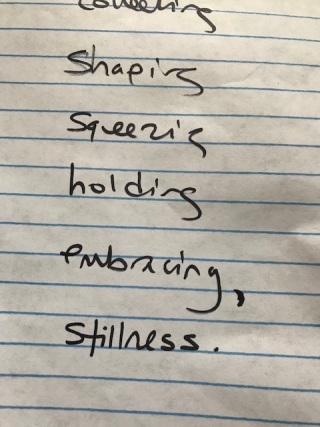 Shaping
Squeezing
holding
embracing,
Stillness.